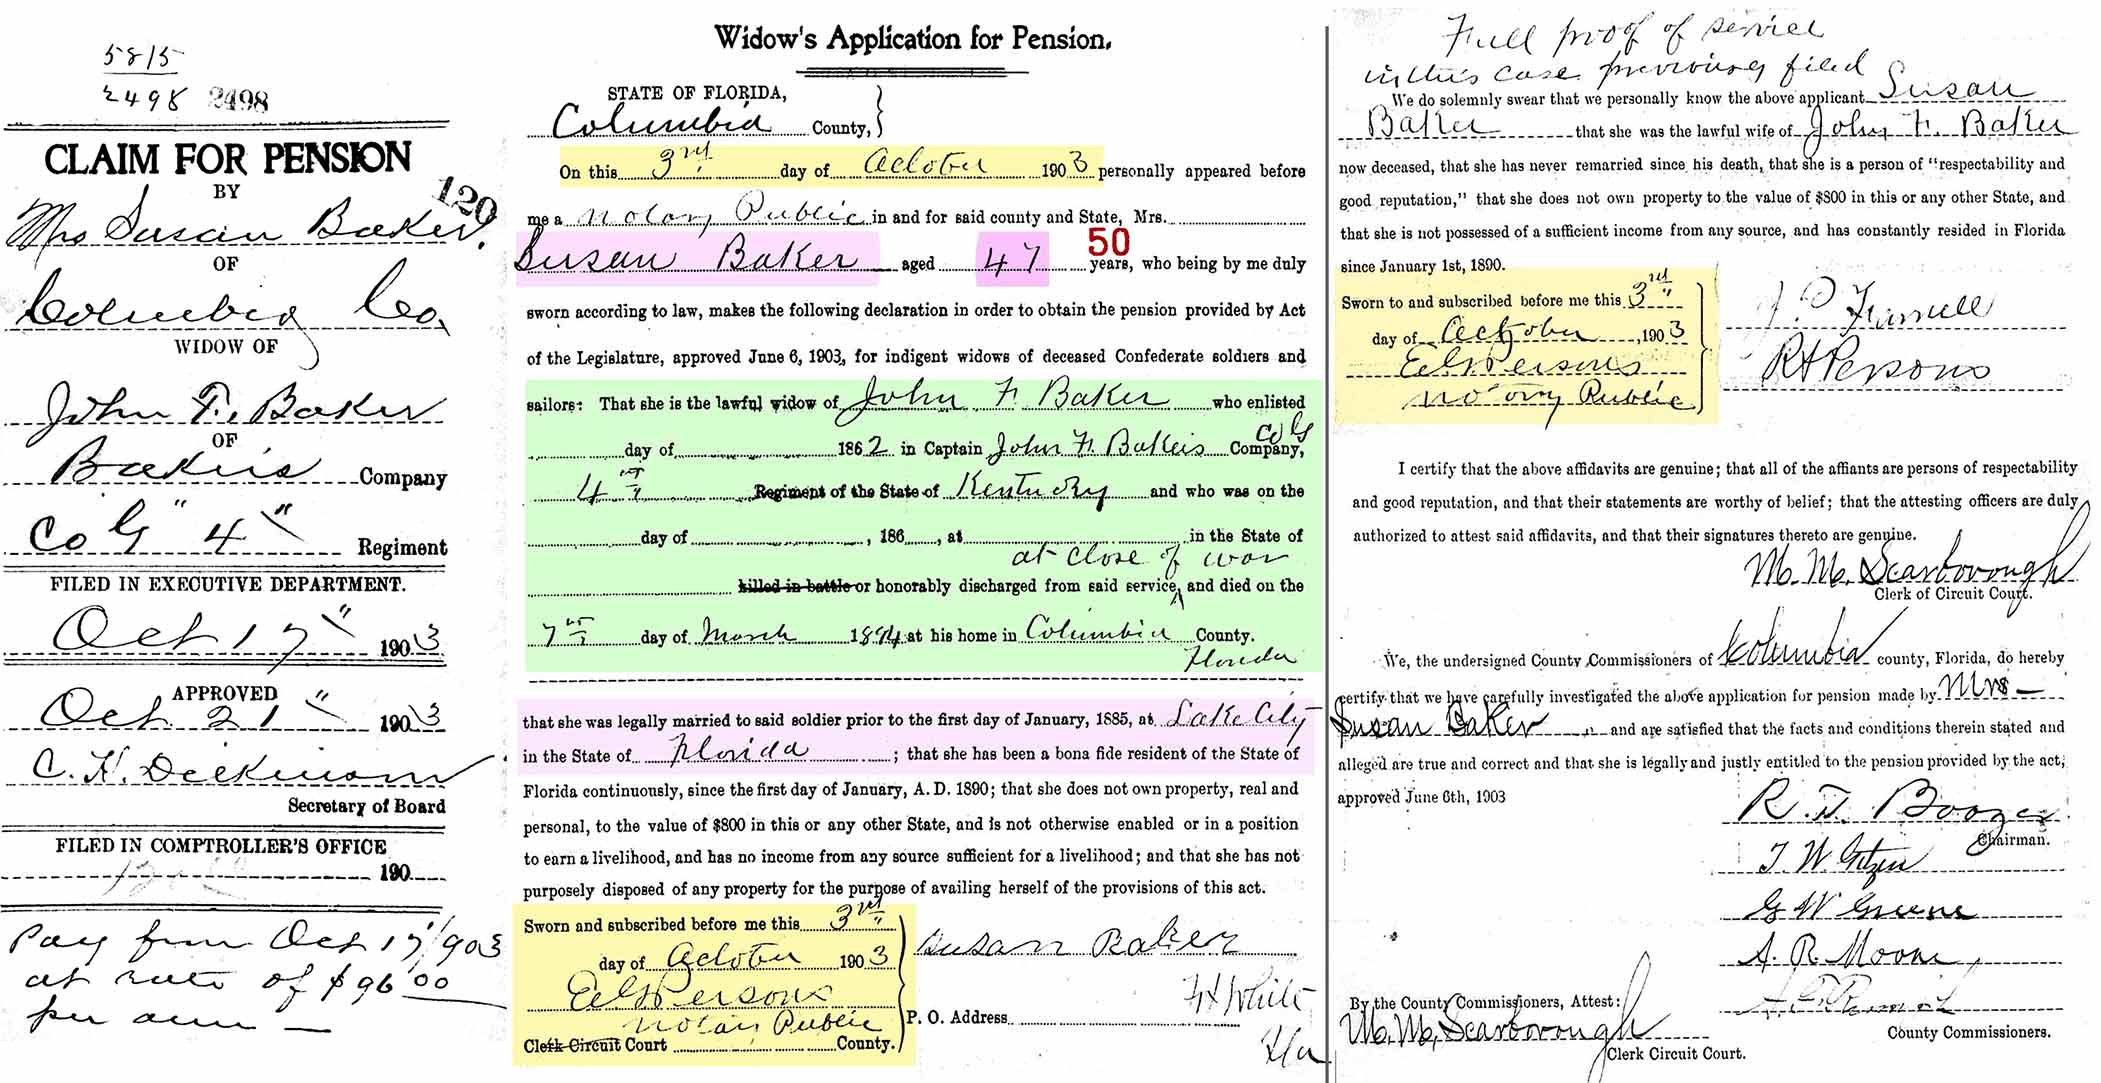 5815
2498 2498
CLAIM FOR PENSION
BY
120
Mrs Susan Baker.
OF
Columbia Co.
WIDOW OF
John F. Baker
OF
Bakers Company
Co G " 4 " Regiment
FILED IN EXECUTIVE DEPARTMENT.
Oct 17 " 1903
APPROVED
Oct. 21 " 1903
C. H. Dickinson
Secretary of Board
FILED IN COMPTROLLER'S OFFICE
190
Pay from Oct 17/903
at rate of $96 00
per ann —
Widow's Application for Pension.
STATE OF FLORIDA,
Columbia County,
On this 3rd day of October 1903 personally appeared before
me a notary Public in and for said county and State, Mrs.
50
Susan Baker aged 47 years, who being by me duly
sworn according to law, makes the following declaration in order to obtain the pension provided by Act
of the Legislature, approved June 6, 1903, for indigent widows of deceased Confederate soldiers and
sailors: That she is the lawful widow of John F. Baker who enlisted
day of 1862 in Captain John F. Bakers Co G Company,
4th Regiment of the State of Kentucky and who was on the
day of , 186 , at in the State of
at close of war
killed in battle or honorably discharged from said service, and died on the
7th day of March 1894 at his home in Columbia County.
Florida
that she was legally married to said soldier prior to the first day of January, 1885, at Lake City
in the State of Florida ; that she has been a bona fide resident of the State of
Florida continuously, since the first day of January, A. D. 1890; that she does not own property, real and
personal, to the value of $800 in this or any other State, and is not otherwise enabled or in a position
to earn a livelihood, and has no income from any source sufficient for a livelihood; and that she has not
purposely disposed of any property for the purpose of availing herself of the provisions of this act.
Sworn and subscribed before me this 3rd
day of October 1903
Persons
notary Public
Clerk Circuit Court County.
Susan Baker
White
P. O. Address
Fla
Full proof of service
in this case previously filed
We do solemnly swear that we personally know the above applicant Susan
Baker that she was the lawful wife of John F. Baker
now deceased, that she has never remarried since his death, that she is a person of "respectability and
good reputation," that she does not own property to the value of $800 in this or any other State, and
that she is not possessed of a sufficient income from any source, and has constantly resided in Florida
since January 1st, 1890.
Sworn to and subscribed before me this 3rd
day of October , 1903
Persons
notary Public
R H Persons
I certify that the above affidavits are genuine; that all of the affiants are persons of respectability
and good reputation, and that their statements are worthy of belief; that the attesting officers are duly
authorized to attest said affidavits, and that their signatures thereto are genuine.
M. M. Scarborough
Clerk of Circuit Court.
We, the undersigned County Commissioners of Columbia county, Florida, do hereby
certify that we have carefully investigated the above application for pension made by Mrs
Susan Baker and are satisfied that the facts and conditions therein stated and
alleged are true and correct and that she is legally and justly entitled to the pension provided by the act,
approved June 6th, 1903
R. T. Boozer
Chairman.
T. W. Getzen
G W Greene
A. R. Moore
By the County Commissioners, Attest:
M. M. Scarborough
Clerk Circuit Court.
County Commissioners.